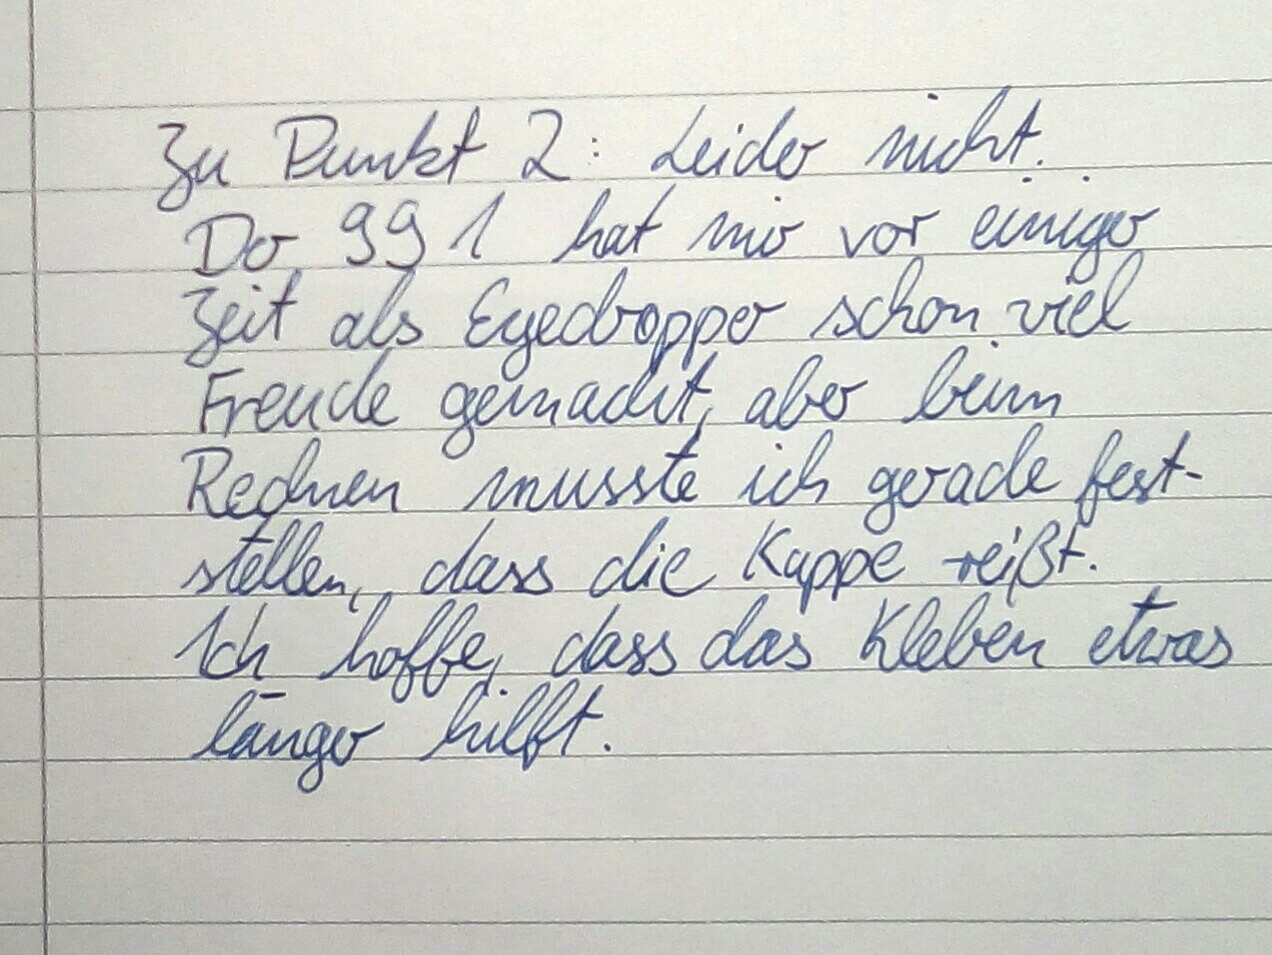 Zu Punkt 2: Leider nicht.
Der 991 hat mir vor einiger
Zeit als Eyedropper schon viel
Freude gemacht, aber beim
Rechnen musste ich gerade fest-
stellen, dass die Kappe reißt.
Ich hoffe, dass das Kleben etwas
länger hilft.